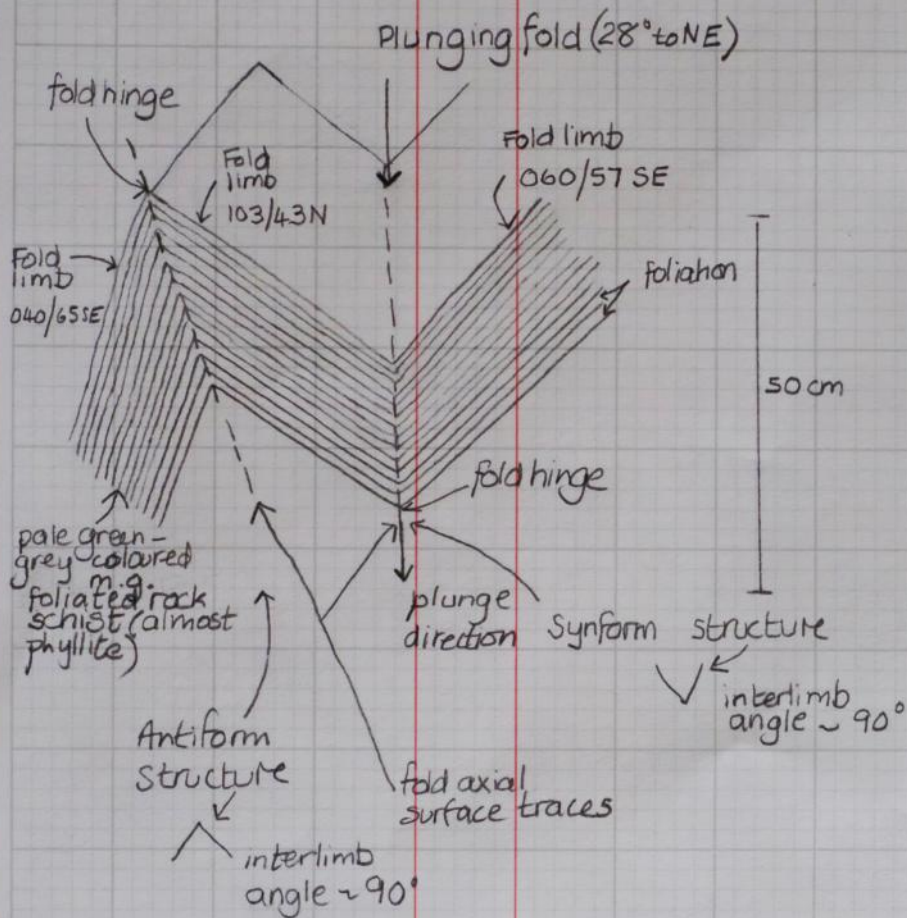 Plunging fold (28° to NE)
fold hinge
Fold
limb
103/43N
Fold limb
060/57 SE
Fold
limb
040/65SE
foliation
50cm
fold hinge
pale green-
grey coloured
m.g.
foliated rock
schist (almost
phyllite)
plunge
direction
Synform structure
interlimb
angle ~ 90°
Antiform
structure
fold axial
surface traces
interlimb
angle ~ 90°